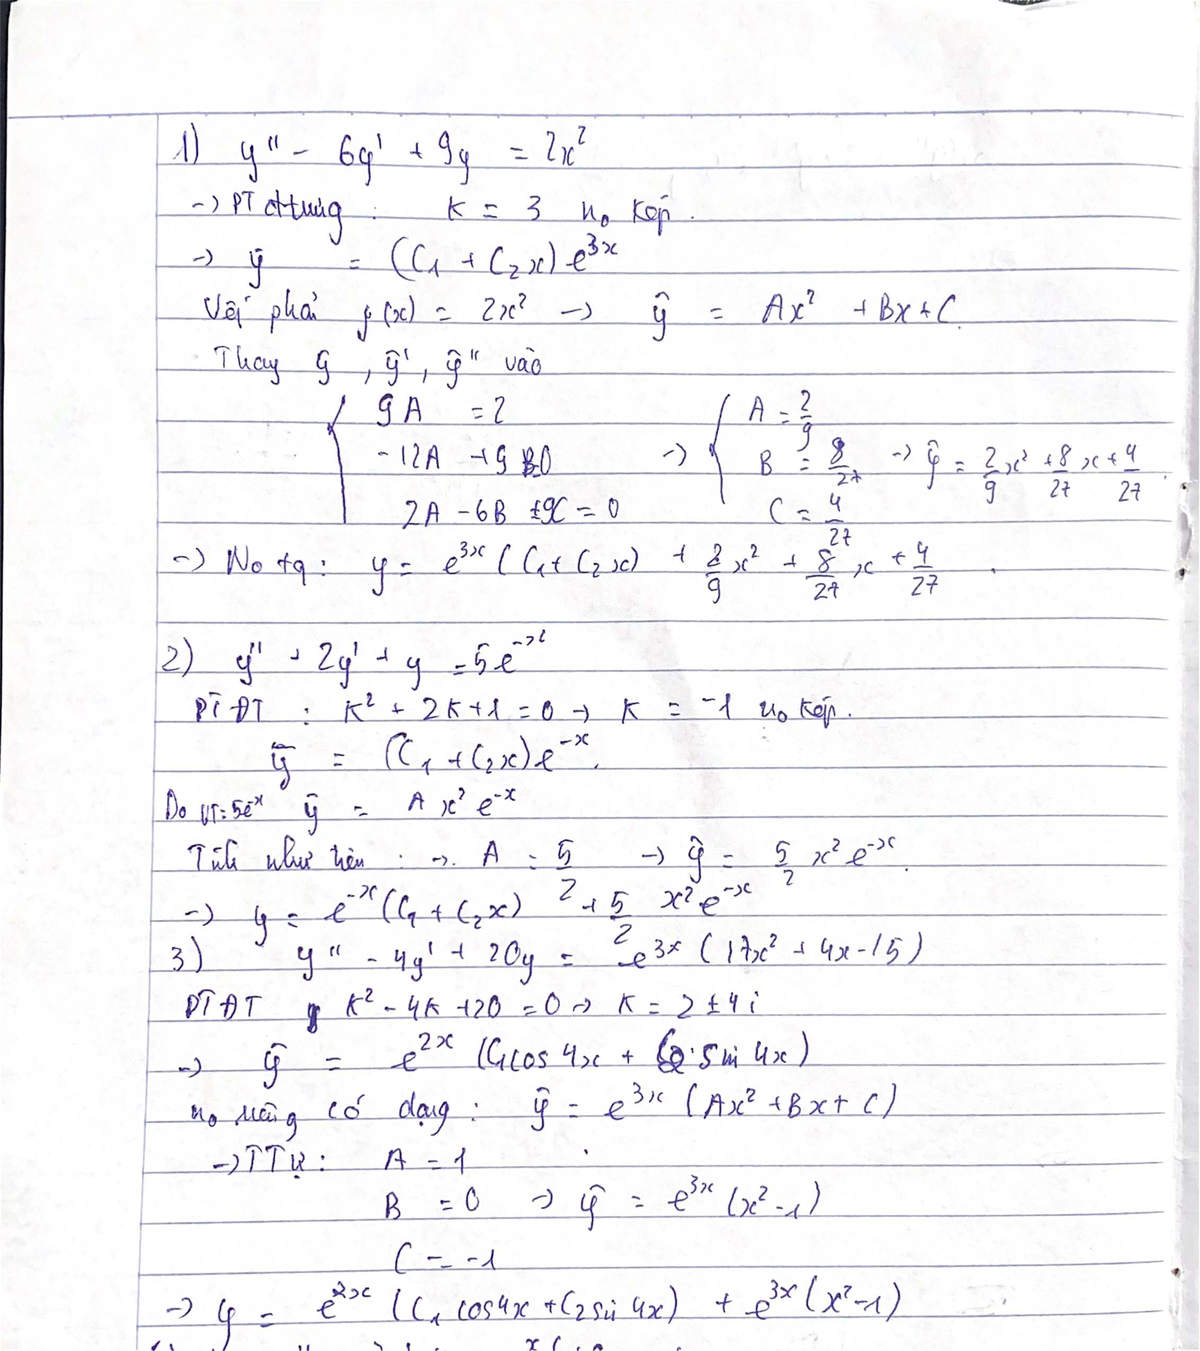 1) y'' - 6y' + 9y = 2x²
-> PT đtrưng : K = 3 no kép.
-> ȳ = (C₁ + C₂x) e^{3x}
Vế phải f(x) = 2x² -> ŷ = Ax² + Bx + C
Thay ŷ, ŷ', ŷ'' vào
{ 9A = 2 -> { A = 2/9
-12A + 9B=0 B = 8/27 -> ŷ = 2/9 x² + 8/27 x + 4/27.
2A - 6B + 9C = 0 C = 4/27
-> No tq : y = e^{3x} (C₁ + C₂x) + 2/9 x² + 8/27 x + 4/27.
2) y'' + 2y' + y = 5e^{-x}
PTĐT : K² + 2K + 1 = 0 -> K = -1 no kép.
ȳ = (C₁ + C₂x)e^{-x}.
Do VT=5e^{-x} ŷ = A x² e^{-x}
Tính như trên : -> A = 5/2 -> ŷ = 5/2 x² e^{-x}.
-> y = e^{-x} (C₁ + C₂x) + 5/2 x² e^{-x}
3) y'' - 4y' + 20y = e^{3x} (17x² + 4x - 15)
PTĐT K² - 4K + 20 = 0 -> K = 2 ± 4i
-> ȳ = e^{2x} (C₁cos 4x + C₂.sin 4x)
no riêng có dạng : ŷ = e^{3x} (Ax² + Bx + C)
-> TTự : A = 1
B = 0 -> ŷ = e^{3x} (x² - 1)
C = -1
-> y = e^{2x} (C₁ cos4x + C₂sin 4x) + e^{3x} (x² - 1)